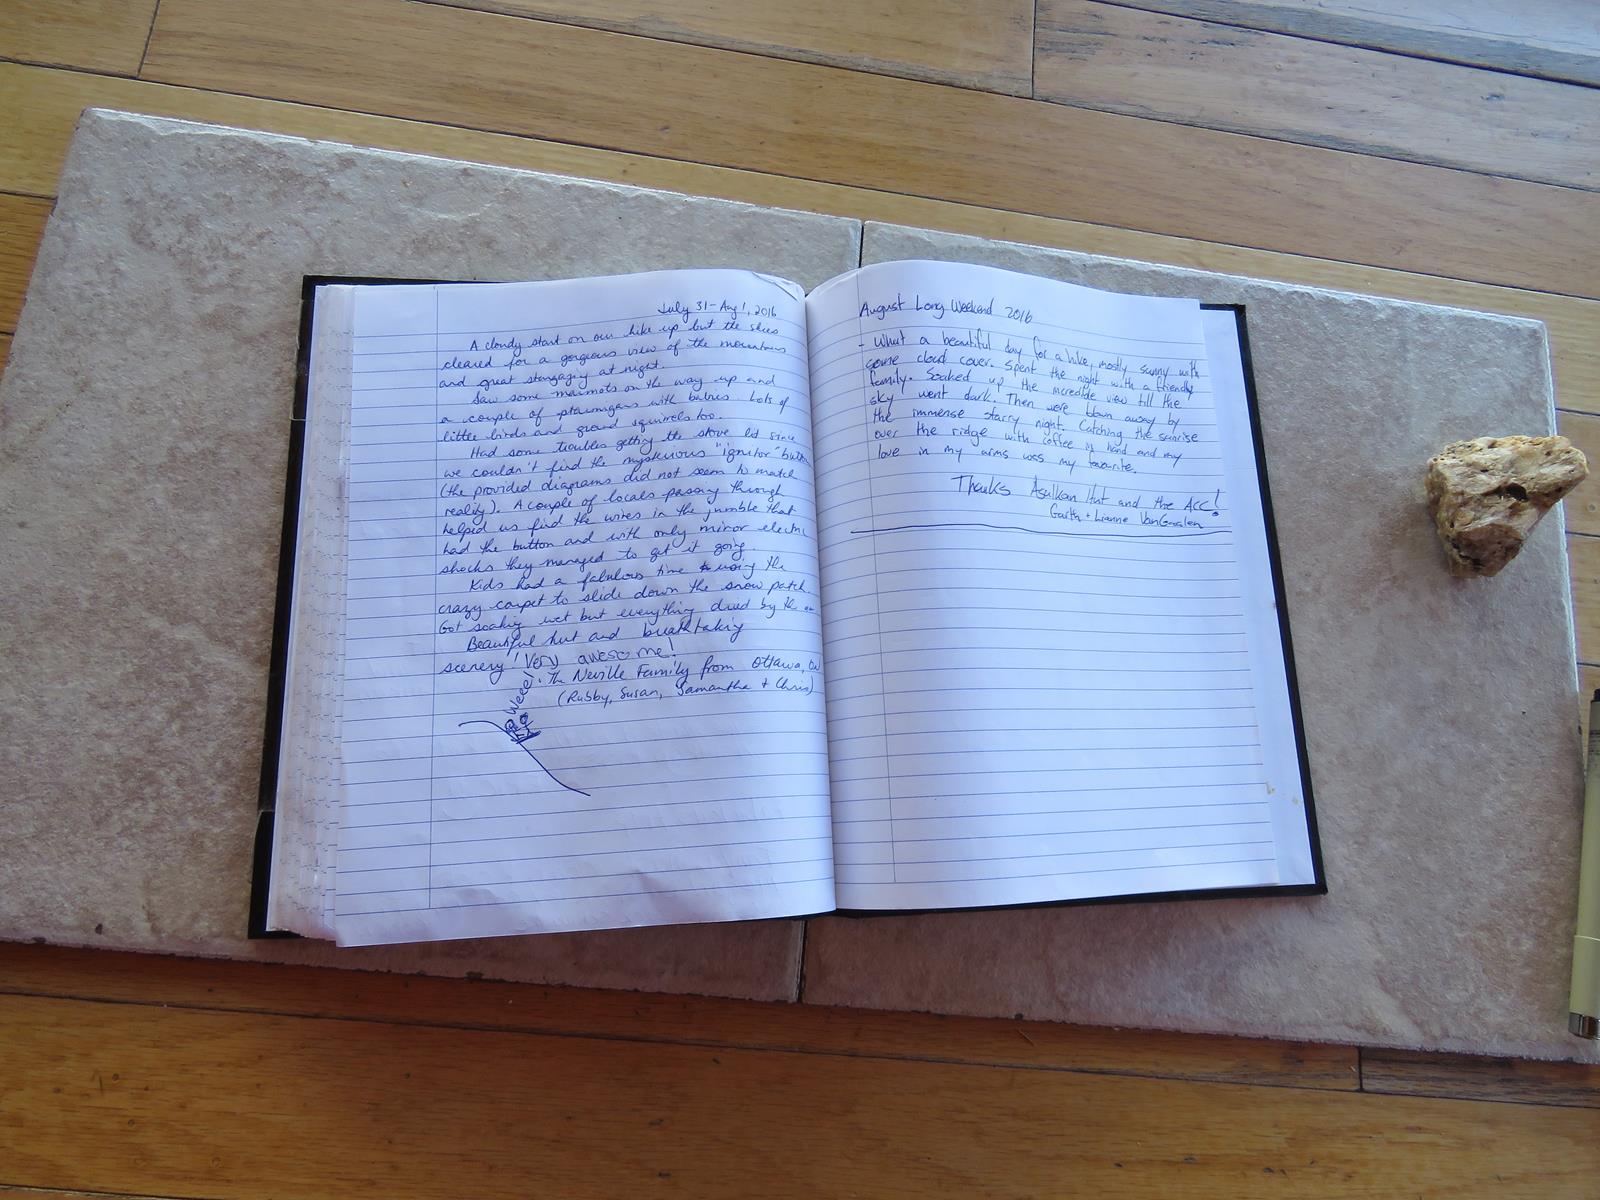 July 31 - Aug 1, 2016
A cloudy start on our hike up but the skies
cleared for a gorgeous view of the mountains
and great stargazing at night.
Saw some marmots on the way up and
a couple of ptarmigans with babies. Lots of
little birds and ground squirrels too.
Had some troubles getting the stove lit since
we couldn't find the mysterious "ignitor" button
(the provided diagrams did not seem to match
reality). A couple of locals passing through
helped us find the wires in the jumble that
had the button and with only minor electric
shocks they managed to get it going.
Kids had a fabulous time using the
crazy carpet to slide down the snow patch.
Got soaking wet but everything dried by the
Beautiful hut and breathtaking
scenery! Very awesome!
- The Neville Family from Ottawa, ON
(Rusby, Susan, Samantha + Chris)
Weee!
August Long Weekend 2016
- What a beautiful day for a hike, mostly sunny with
some cloud cover. Spent the night with a friendly
family. Soaked up the incredible view till the
sky went dark. Then were blown away by
the immense starry night. Catching the sunrise
over the ridge with coffee in hand and my
love in my arms was my favorite.
Thanks Asulkan Hut and the ACC!
Garth + Lianne VanGaalen